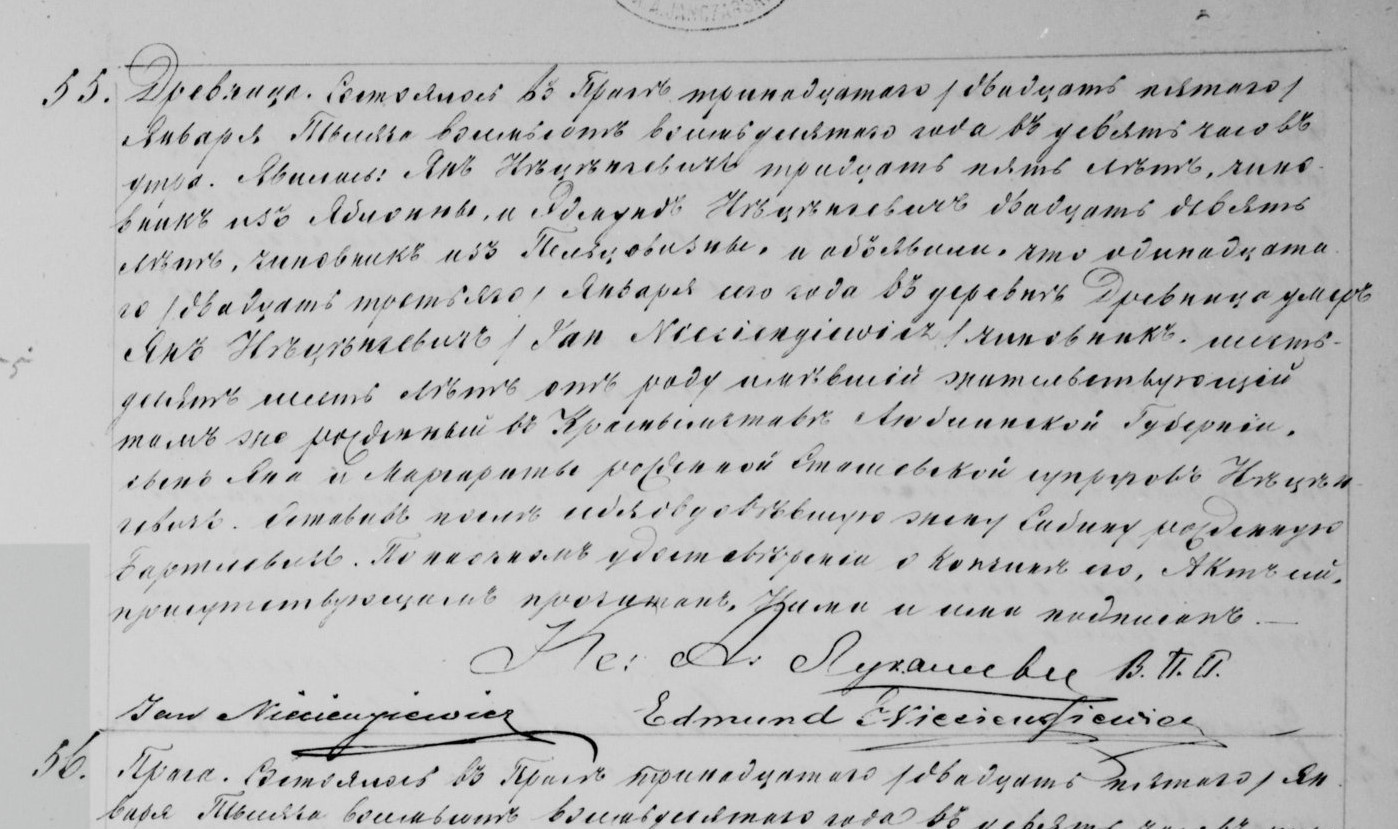 JANCZARSK
55. Древница. Состоялось въ Прагѣ тринадцатаго /двадцать пятаго/
Января Тысяча восемьсотъ восемьдесятаго года въ девять часовъ
утра. Явились: Янъ Нѣцѣнгевичъ тридцать пять лѣтъ, чино-
вникъ изъ Яблонны, и Эдмундъ Нѣцѣнгевичъ двадцать девять
лѣтъ, чиновникъ изъ и объявили, что одинадцата-
го /двадцать третьяго/ Января сего года въ деревнѣ Древница умеръ
Янъ Нѣцѣнгевичъ /Jan Nieciengiewicz/ чиновникъ, шесть-
десятъ шесть лѣтъ отъ роду имѣвшій жительствующій
тамъ же рожденный въ Красныставѣ Люблинской Губерніи,
сынъ Яна и Маргариты рожденной Сташевской супруговъ Нѣцѣн-
гевичъ. Оставивъ послѣ себя овдовѣвшую жену Сабину рожденную
Бартишевичъ. По наочномъ удостовѣреніи о кончинѣ его, Актъ сей,
присутствующимъ прочитанъ, Нами и ими подписанъ.—
Кс: А: В.П.П.
Jan Nieciengiewicz Edmund Nieciengiewicz
56. Прага. Состоялось въ Прагѣ тринадцатаго /двадцать пятаго/ Ян-
варя Тысяча восемьсотъ восемьдесятаго года въ девять часовъ